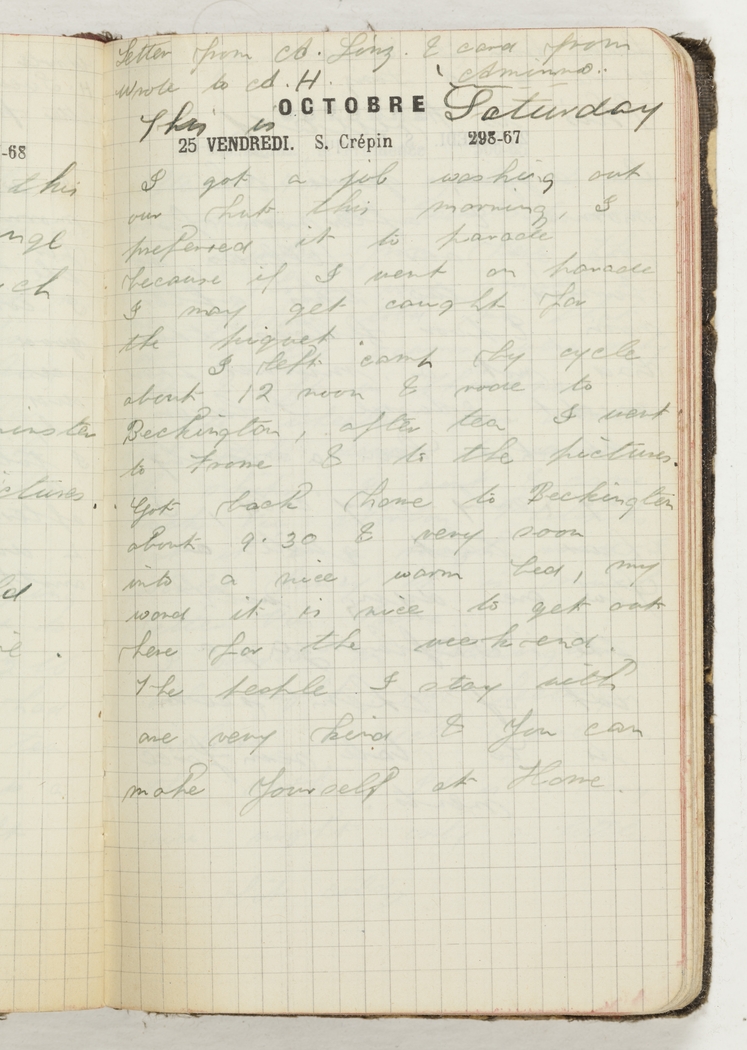 Letter from At. Linz. & card from
Wrote to At. H.
This is OCTOBRE Saturday
25 VENDREDI. S. Crépin 298-67
I got a job washing out
our hut this morning, I
preferred it to parade
because if I went on parade
I may get caught for
the piquet.
I left camp by cycle
about 12 noon & rode to
Beckington, after tea I went
to Frome & to the pictures.
Got back home to Beckington
about 9.30 & very soon
into a nice warm bed, my
word it is nice to get out
here for the week-end.
The people I stay with
are very kind & You can
make Yourself at Home.
-68
this
nge
ch
minster
ctures.
ld